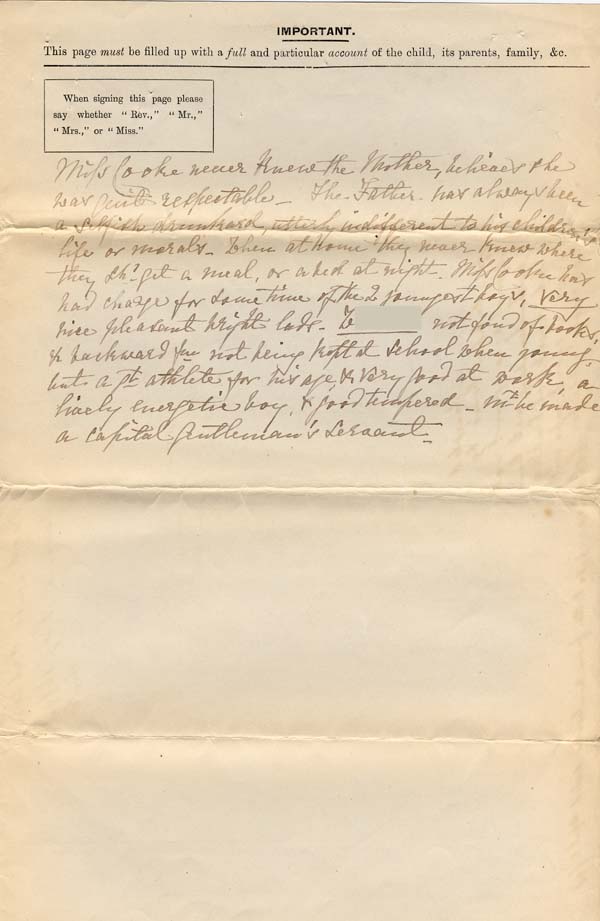 IMPORTANT.
This page must be filled up with a full and particular account of the child, its parents, family, &c.
When signing this page please
say whether "Rev.," "Mr.,"
"Mrs.," or "Miss."
Miss Cooke never knew the Mother, believes she
was quite respectable - The Father has always been
a selfish drunkard, utterly indifferent to his children's
life or morals - When at home they never knew where
they shd. get a meal, or a bed at night. Miss Cooke has
had charge for some time of the 2 youngest boys, very
nice pleasant bright lads - not fond of books,
& backward fm. not being kept at school when young,
but a gt. athlete for his age, & very good at work, a
lively energetic boy, & good tempered - mt. be made
a capital Gentleman's servant -